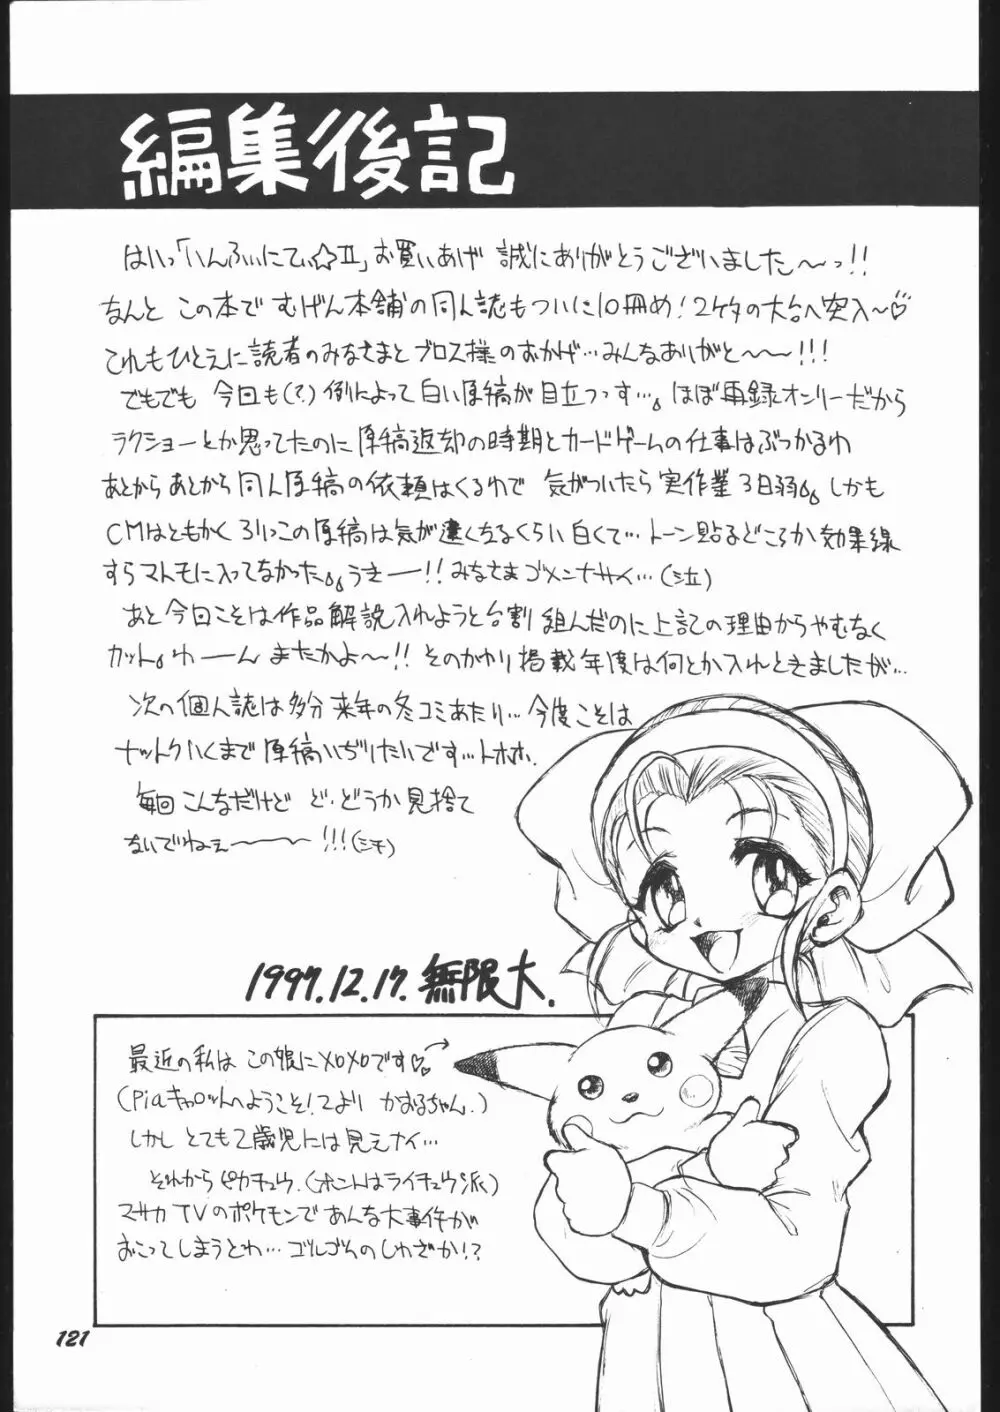 編集後記
はいっ「いんふぃにてぃ☆II」お買いあげ 誠にありがとうございました〜っ!!
なんと この本で むげん本舗の同人誌もついに10冊め!2ケタの大台へ突入〜♡
これもひとえに読者のみなさまとブロス様のおかげ…みんなありがと〜〜!!!
でもでも 今回も(?)例によって白い原稿が目立つっす…。ほぼ再録オンリーだから
ラクショーとか思ってたのに原稿返却の時期とカードゲームの仕事はぶつかるわ
あとからあとから同人原稿の依頼はくるわで 気がついたら実作業3日弱。。しかも
CMはともかく ろりっこの原稿は気が遠くなるくらい白くて…トーン貼るどころか効果線
すらマトモに入ってなかった。。うきー!!みなさまゴメンナサイ…(泣)
あと今回こそは作品解説入れようと台割組んだのに上記の理由からやむなく
カット。わーん またかよ〜!!そのかわり掲載年度は何とか入れときましたが…
次の個人誌は多分来年の冬コミあたり…今度こそは
ナットクいくまで原稿いぢりたいです…トホホ.
毎回こんなだけど ど・どうか見捨て
ないでねぇ〜〜!!!(汗)
1997.12.17.無限大.
最近の私は この娘にメロメロです♡♡
(Piaキャロットへようこそ!2より かおるちゃん.)
しかし とても2歳児には見えナイ…
それからピカチュウ.(ホントはライチュウ派)
マサカTVのポケモンであんな大事件が
おこってしまうとわ…ゴルゴムのしわざか!?
121